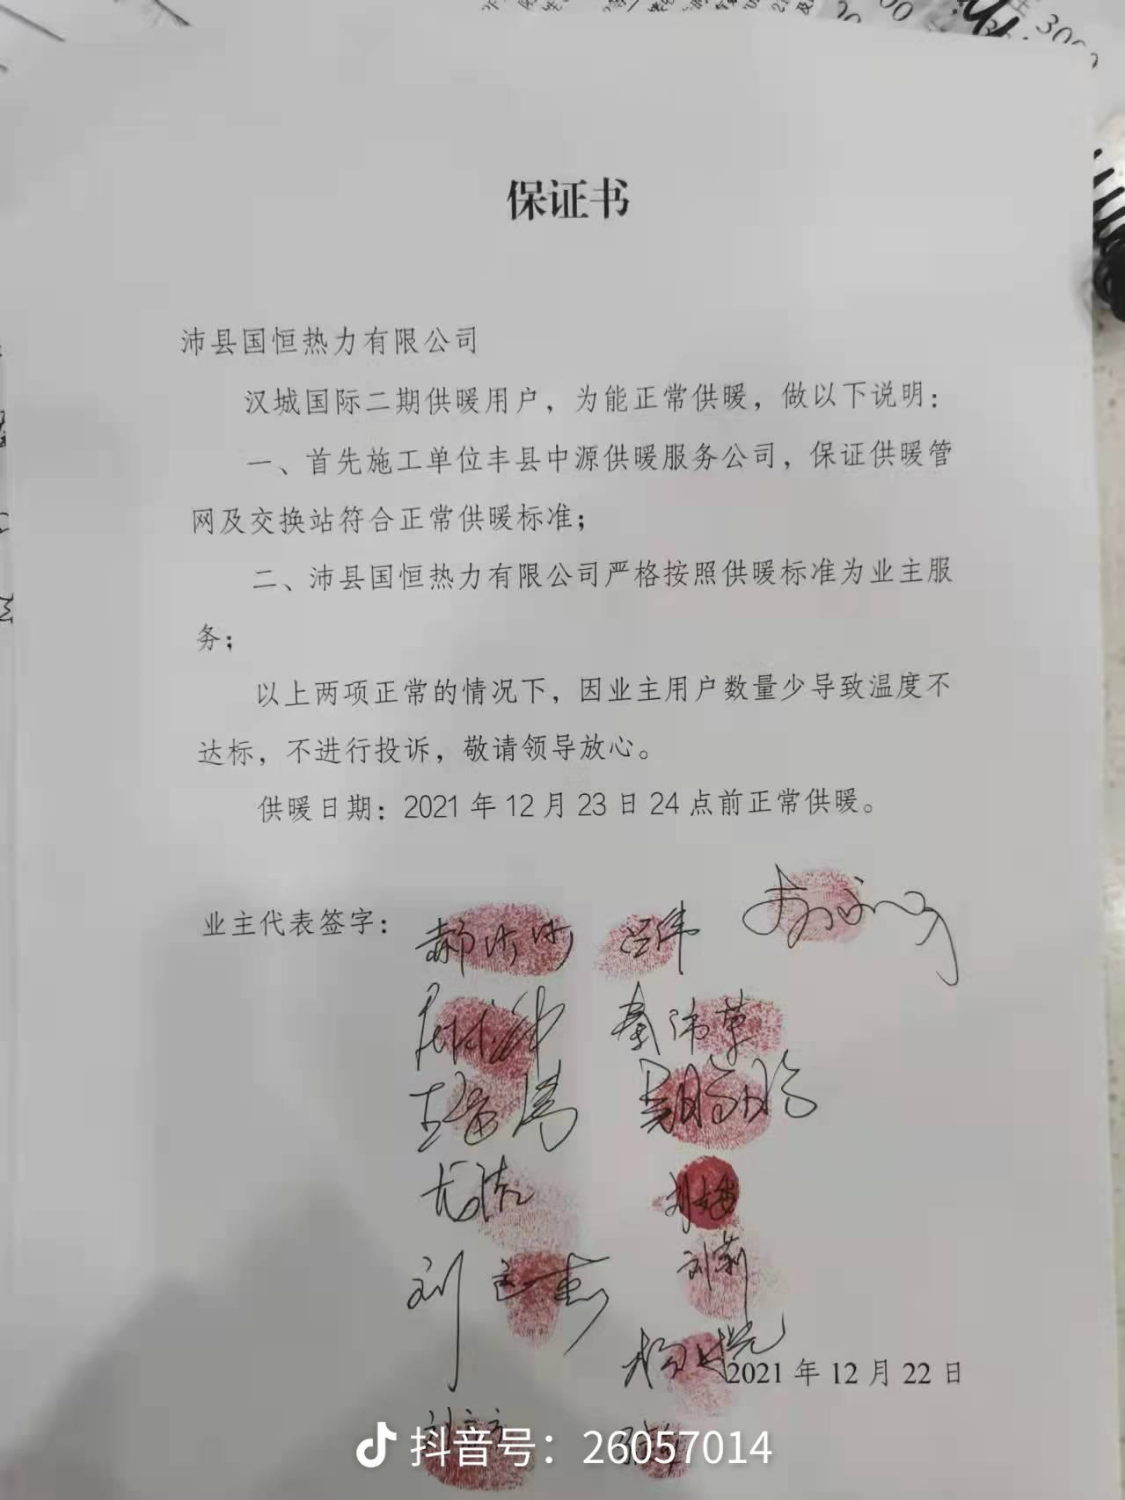 保证书
沛县国恒热力有限公司
汉城国际二期供暖用户，为能正常供暖，做以下说明：
一、首先施工单位丰县中源供暖服务公司，保证供暖管
网及交换站符合正常供暖标准；
二、沛县国恒热力有限公司严格按照供暖标准为业主服
务；
以上两项正常的情况下，因业主用户数量少导致温度不
达标，不进行投诉，敬请领导放心。
供暖日期：2021 年 12 月 23 日 24 点前正常供暖。
业主代表签字：
刘莉
2021 年 12 月 22 日
抖音号：26057014